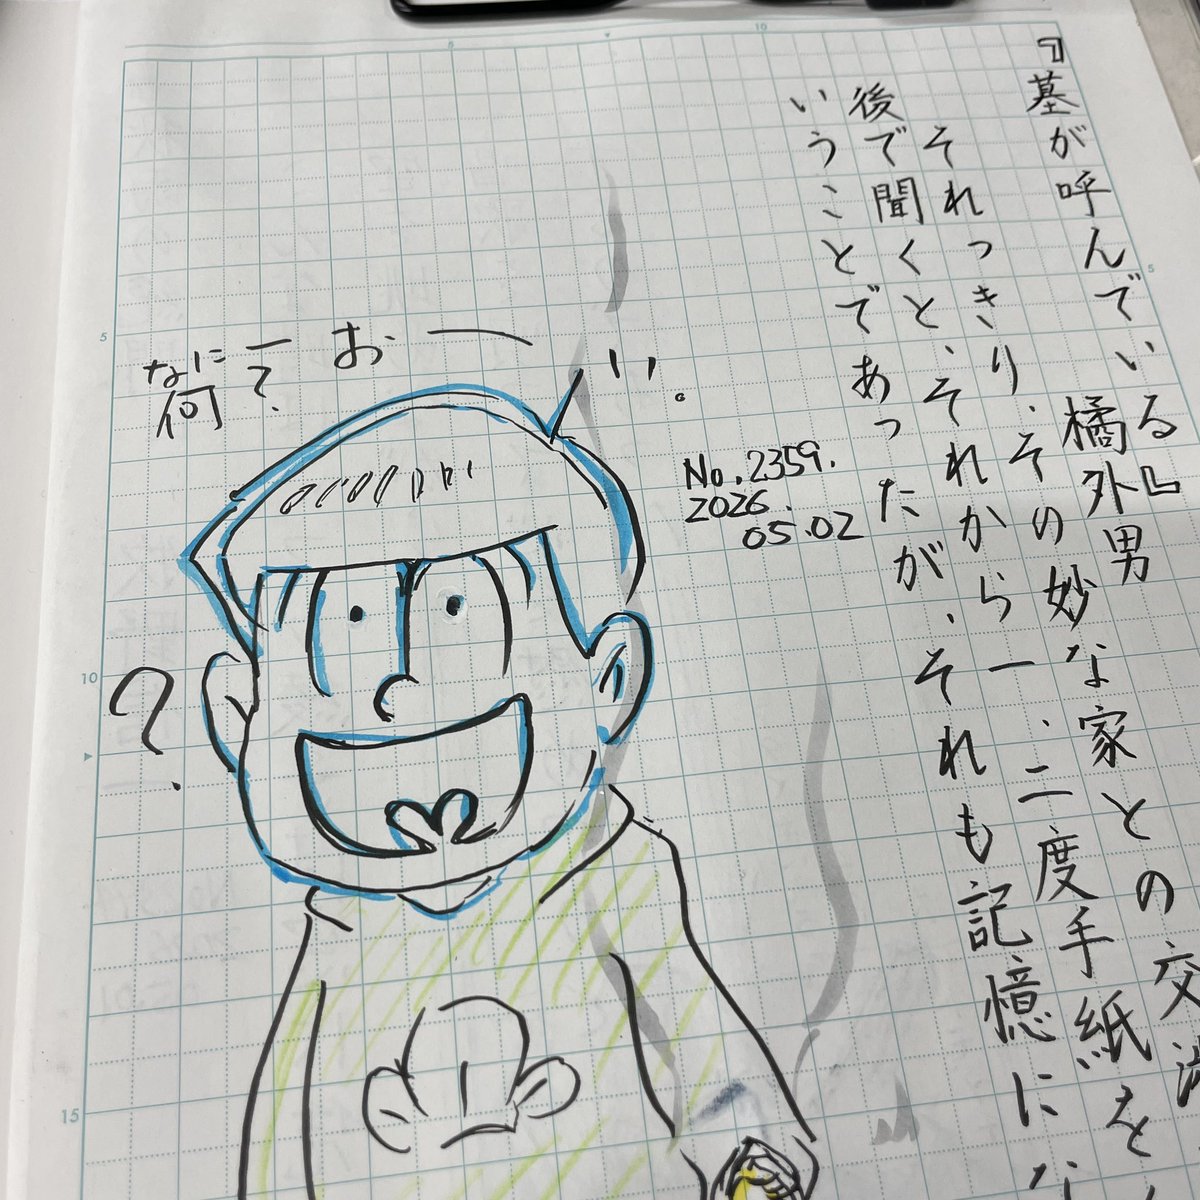 『墓が呼んでいる』
橘外男
それっきり、その妙な家との交渉
後で聞くと、それから一、二度手紙を
いうことであったが、それも記憶にな
No.2359.
2026.
05.02
おーい。
なに
何ー?
?
5
10
5
5
10
15